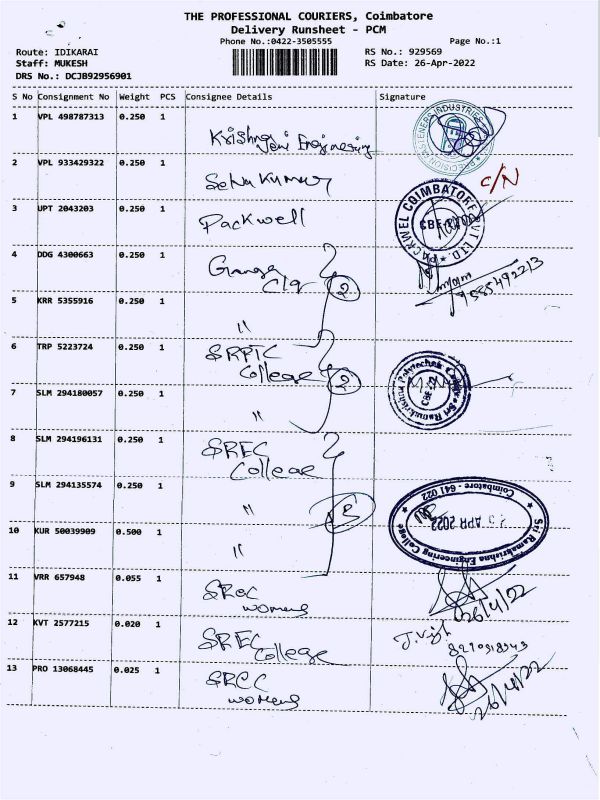 THE PROFESSIONAL COURIERS, Coimbatore
Delivery Runsheet - PCM
Phone No.:0422-3505555 Page No.:1
Route: IDIKARAI RS No.: 929569
Staff: MUKESH RS Date: 26-Apr-2022
DRS No.: DCJB92956901
S No Consignment No Weight PCS Consignee Details Signature
1 VPL 498787313 0.250 1
Krishna Veni Engineering
2 VPL 933429322 0.250 1
C/N
3 UPT 2043203 0.250 1 Packwell
PACKWEL COIMBATORE PVT LTD.
4 DDG 4300663 0.250 1
Clg 2
9585492213
5 KRR 5355916 0.250 1
"
6 TRP 5223724 0.250 1 SRPTC
College 2
Sri Ramakrishna Polytechnic College
CBE-22
7 SLM 294180057 0.250 1
"
8 SLM 294196131 0.250 1 SREC
College
9 SLM 294135574 0.250 1
"
Sri Ramakrishna Engineering College
Coimbatore - 641 022
APR 2022
10 KUR 50039909 0.500 1
"
11 VRR 657948 0.055 1
womens
26/4/22
12 KVT 2577215 0.020 1 SREC
College
13 PRO 13068445 0.025 1
womens